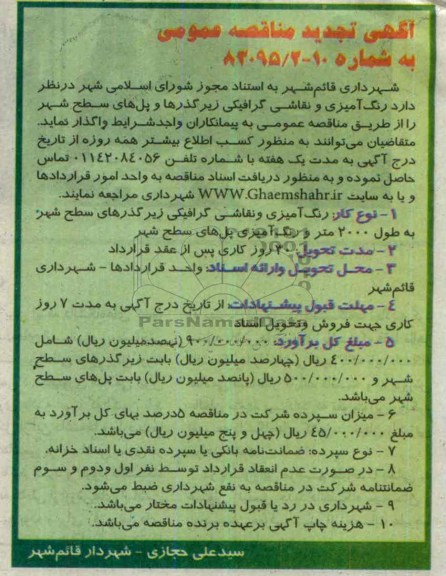 آگهی تجدید مناقصه عمومی
به شماره ۹۰-۸۳۰۹۵/۲
شهرداری قائم‌شهر به استناد مجوز شورای اسلامی شهر درنظر
دارد رنگ‌آمیزی و نقاشی گرافیکی زیرگذرها و پل‌های سطح شهر
را از طریق مناقصه عمومی به پیمانکاران واجدشرایط واگذار نماید.
متقاضیان می‌توانند به منظور کسب اطلاع بیشتر همه روزه از تاریخ
درج آگهی به مدت یک هفته با شماره تلفن ۰۱۱۴۲۰۸۴۰۵۶ تماس
حاصل نموده و به منظور دریافت اسناد مناقصه به واحد امور قراردادها
و یا به سایت WWW.Ghaemshahr.ir شهرداری مراجعه نمایند.
۱- نوع کار: رنگ‌آمیزی ونقاشی گرافیکی زیرگذرهای سطح شهر
به طول ۲۰۰۰ متر و رنگ‌آمیزی پل‌های سطح شهر
۲- مدت تحویل: ۳۰ روز کاری پس از عقد قرارداد
۳- محل تحویل وارائه اسناد: واحد قراردادها - شهرداری
قائم‌شهر
۴- مهلت قبول پیشنهادات: از تاریخ درج آگهی به مدت ۷ روز
کاری جهت فروش وتحویل اسناد
۵- مبلغ کل برآورد: ۹۰۰/۰۰۰/۰۰۰ (نهصدمیلیون ریال) شامل
۴۰۰/۰۰۰/۰۰۰ ریال (چهارصد میلیون ریال) بابت زیرگذرهای سطح
شهر و ۵۰۰/۰۰۰/۰۰۰ ریال (پانصد میلیون ریال) بابت پل‌های سطح
شهر می‌باشد.
۶- میزان سپرده شرکت در مناقصه ۵درصد بهای کل برآورد به
مبلغ ۴۵/۰۰۰/۰۰۰ ریال (چهل و پنج میلیون ریال) می‌باشد.
۷- نوع سپرده: ضمانت‌نامه بانکی یا سپرده نقدی یا اسناد خزانه.
۸- در صورت عدم انعقاد قرارداد توسط نفر اول ودوم و سوم
ضمانتنامه شرکت در مناقصه به نفع شهرداری ضبط می‌شود.
۹- شهرداری در رد یا قبول پیشنهادات مختار می‌باشد.
۱۰- هزینه چاپ آگهی برعهده برنده مناقصه می‌باشد.
سیدعلی حجازی - شهردار قائم‌شهر